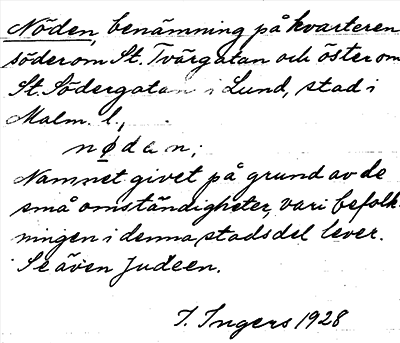 Nöden, benämning på kvarteren
söder om St. Tvärgatan och öster om
St. Södergatan i Lund, stad i
Malm. l.,
nødɛn;
Namnet givet på grund av de
små omständigheter, vari befolk-
ningen i denna stadsdel lever.
Se även Judeen.
I. Ingers 1928